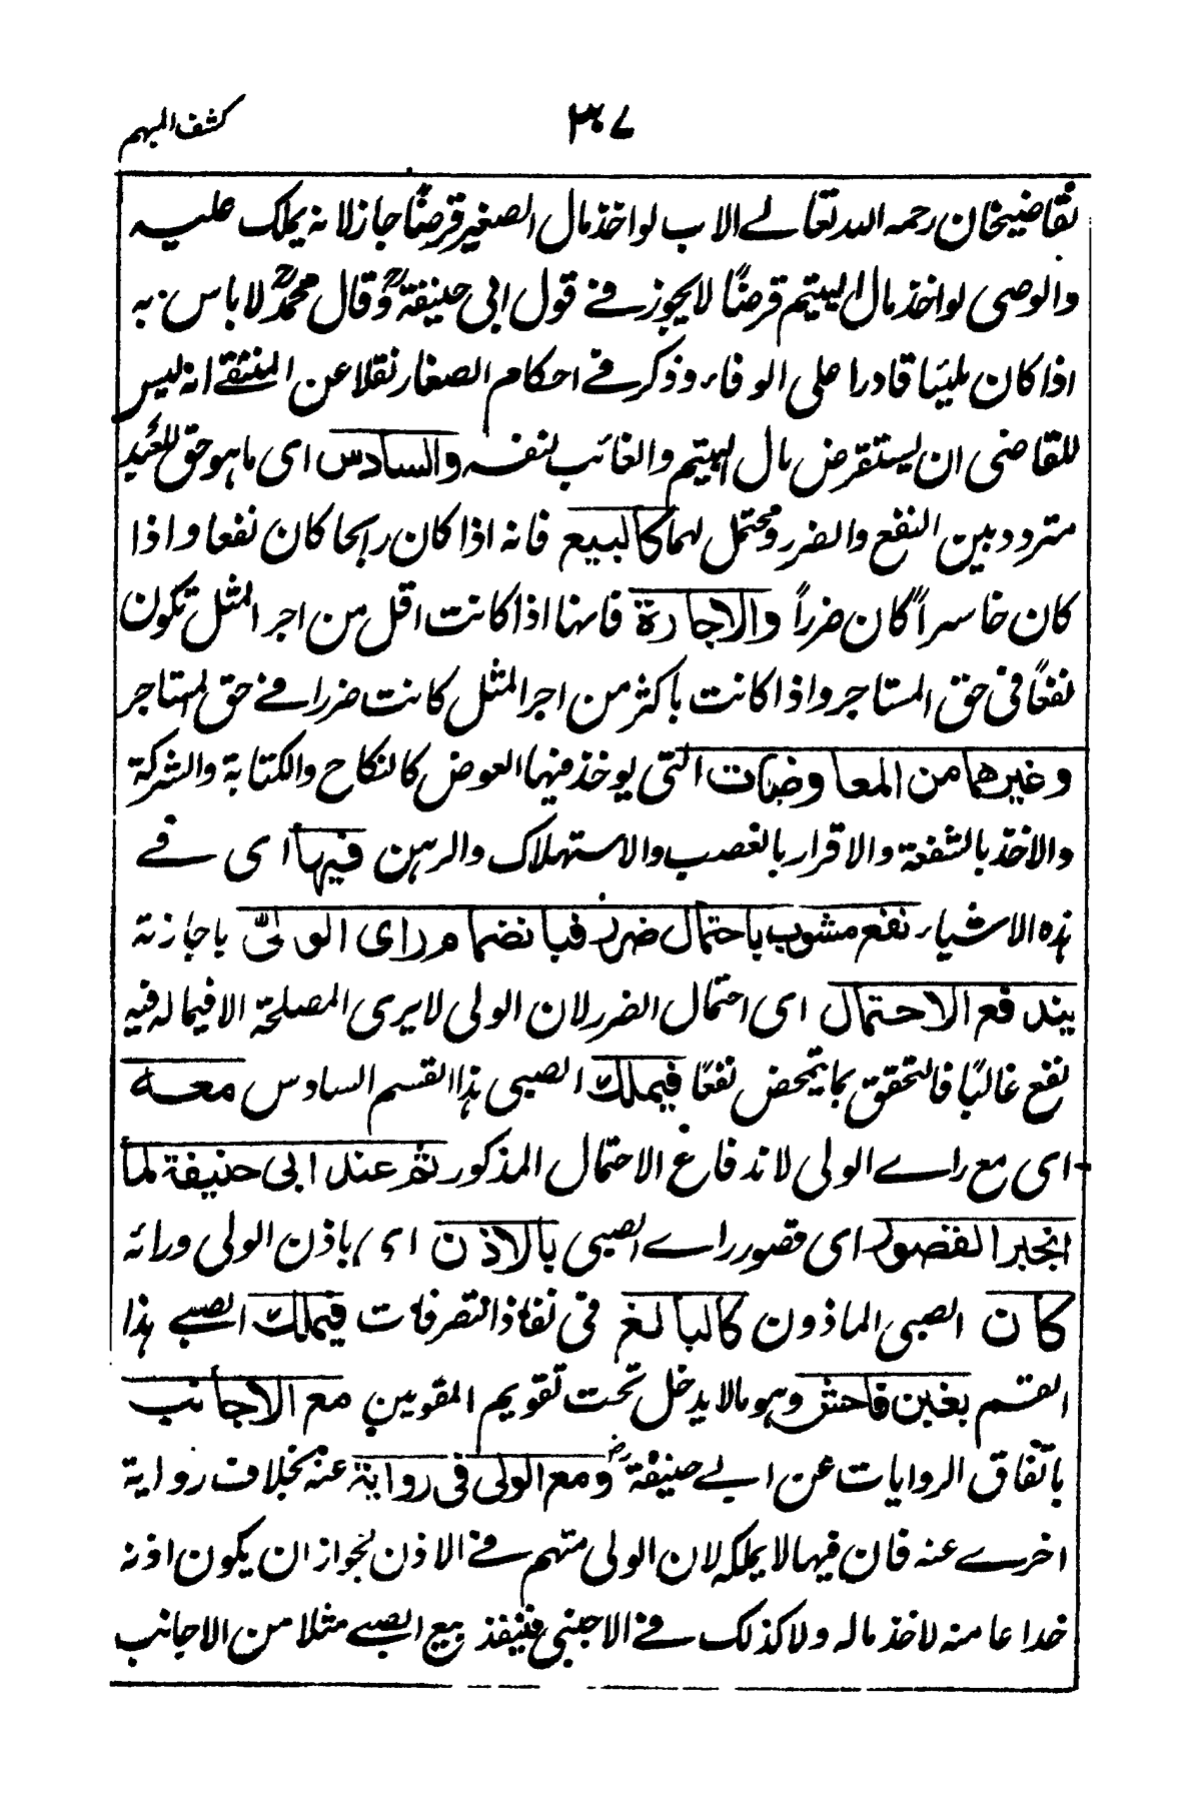 كشف المبهم
٣٠٧
لقاضيخان رحمه الله تعالے الاب لو اخذ مال الصغير قرضًا جاز لانه يملك عليه
والوصى لو اخذ مال اليتيم قرضًا لا يجوز فے قول ابى حنيفة رح وقال محمد رح لا باس به
اذا كان مليئا قادرا على الوفاء وذكر فے احكام الصغار نقلا عن المنتقے انه ليس
للقاضى ان يستقرض مال اليتيم والغائب لنفسه والسادس اى ما هو حق للعبد
متردد بين النفع والضرر ومحتمل لهما كالبيع فانه اذا كان رابحا كان نفعا واذا
كان خاسراً كان ضرراً والاجارة فانها اذا كانت اقل من اجر المثل تكون
نفعاً فى حق المستاجر واذا كانت باكثر من اجر المثل كانت ضررا فے حق المستاجر
وغيرهما من المعاوضات التى يوخذ فيها العوض كالنكاح والكتابة والشركة
والاخذ بالشفعة والاقرار بالغصب والاستهلاك والرهن فيها اى فے
هذه الاشياء نفع مشوب باحتمال ضرر فبانضمام راى الولى باجازته
يندفع الاحتمال اى احتمال الضرر لان الولى لا يرى المصلحة الا فيما له فيه
نفع غالبًا فالتحقق بما يتمحض نفعًا فيملك الصبى هذا القسم السادس معه
اى مع راے الولى لاندفاع الاحتمال المذكور ثم عند ابى حنيفة لما
انجبر القصور اى قصور راے الصبى بالاذن اى باذن الولى ورائه
كان الصبى الماذون كالبالغ فى نفاذ التصرفات فيملك الصبے هذا
القسم بغبن فاحش وهو ما لا يدخل تحت تقويم المقومين مع الاجانب
باتفاق الروايات عن ابے حنيفة رض ومع الولى فى رواية عنه بخلاف رواية
اخرے عنه فان فيها لا يملكه لان الولى متهم فے الاذن لجواز ان يكون اذنه
خداعا منه لاخذ ماله ولا كذلك فے الاجنبى فينفذ بيع الصبے مثلا من الاجانب